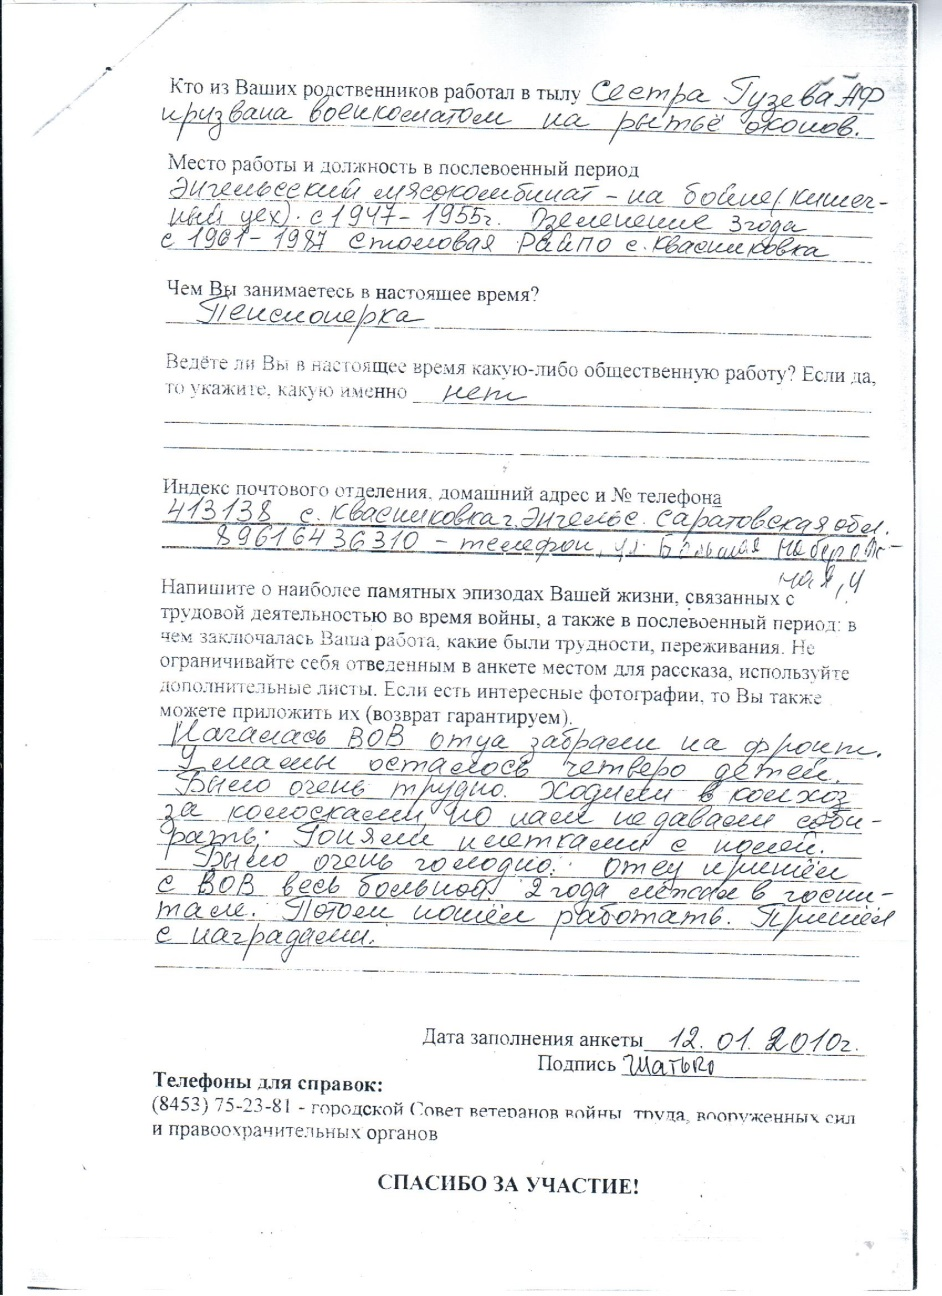 Кто из Ваших родственников работал в тылу Сестра Гузева АФ
призвана военкоматом на рытьё окопов.
Место работы и должность в послевоенный период
Энгельсский мясокомбинат - на бойне (кишеч-
ный цех). с 1947 - 1955г. Озеленение 3 года
с 1961 - 1987 столовая РайПО с. Квасниковка
Чем Вы занимаетесь в настоящее время?
Пенсионерка
Ведёте ли Вы в настоящее время какую-либо общественную работу? Если да,
то укажите, какую именно нет
Индекс почтового отделения, домашний адрес и № телефона
413138 с. Квасниковка г. Энгельс. Саратовская обл.
89616436310 - телефон, ул. Большая Набереж-
ная, 4
Напишите о наиболее памятных эпизодах Вашей жизни, связанных с
трудовой деятельностью во время войны, а также в послевоенный период: в
чем заключалась Ваша работа, какие были трудности, переживания. Не
ограничивайте себя отведенным в анкете местом для рассказа, используйте
дополнительные листы. Если есть интересные фотографии, то Вы также
можете приложить их (возврат гарантируем).
Началась ВОВ отца забрали на фронт.
У мамы осталось четверо детей.
Было очень трудно. Ходили в колхоз
за колосками но нам не давали соби-
рать. Гоняли плётками с полей.
Было очень голодно. Отец пришёл
с ВОВ весь больной. 2 года лежал в госпи-
тале. Потом пошёл работать. Пришёл
с наградами.
Дата заполнения анкеты 12. 01. 2010г.
Подпись Шатько
Телефоны для справок:
(8453) 75-23-81 - городской Совет ветеранов войны, труда, вооруженных сил
и правоохрачительных органов
СПАСИБО ЗА УЧАСТИЕ!